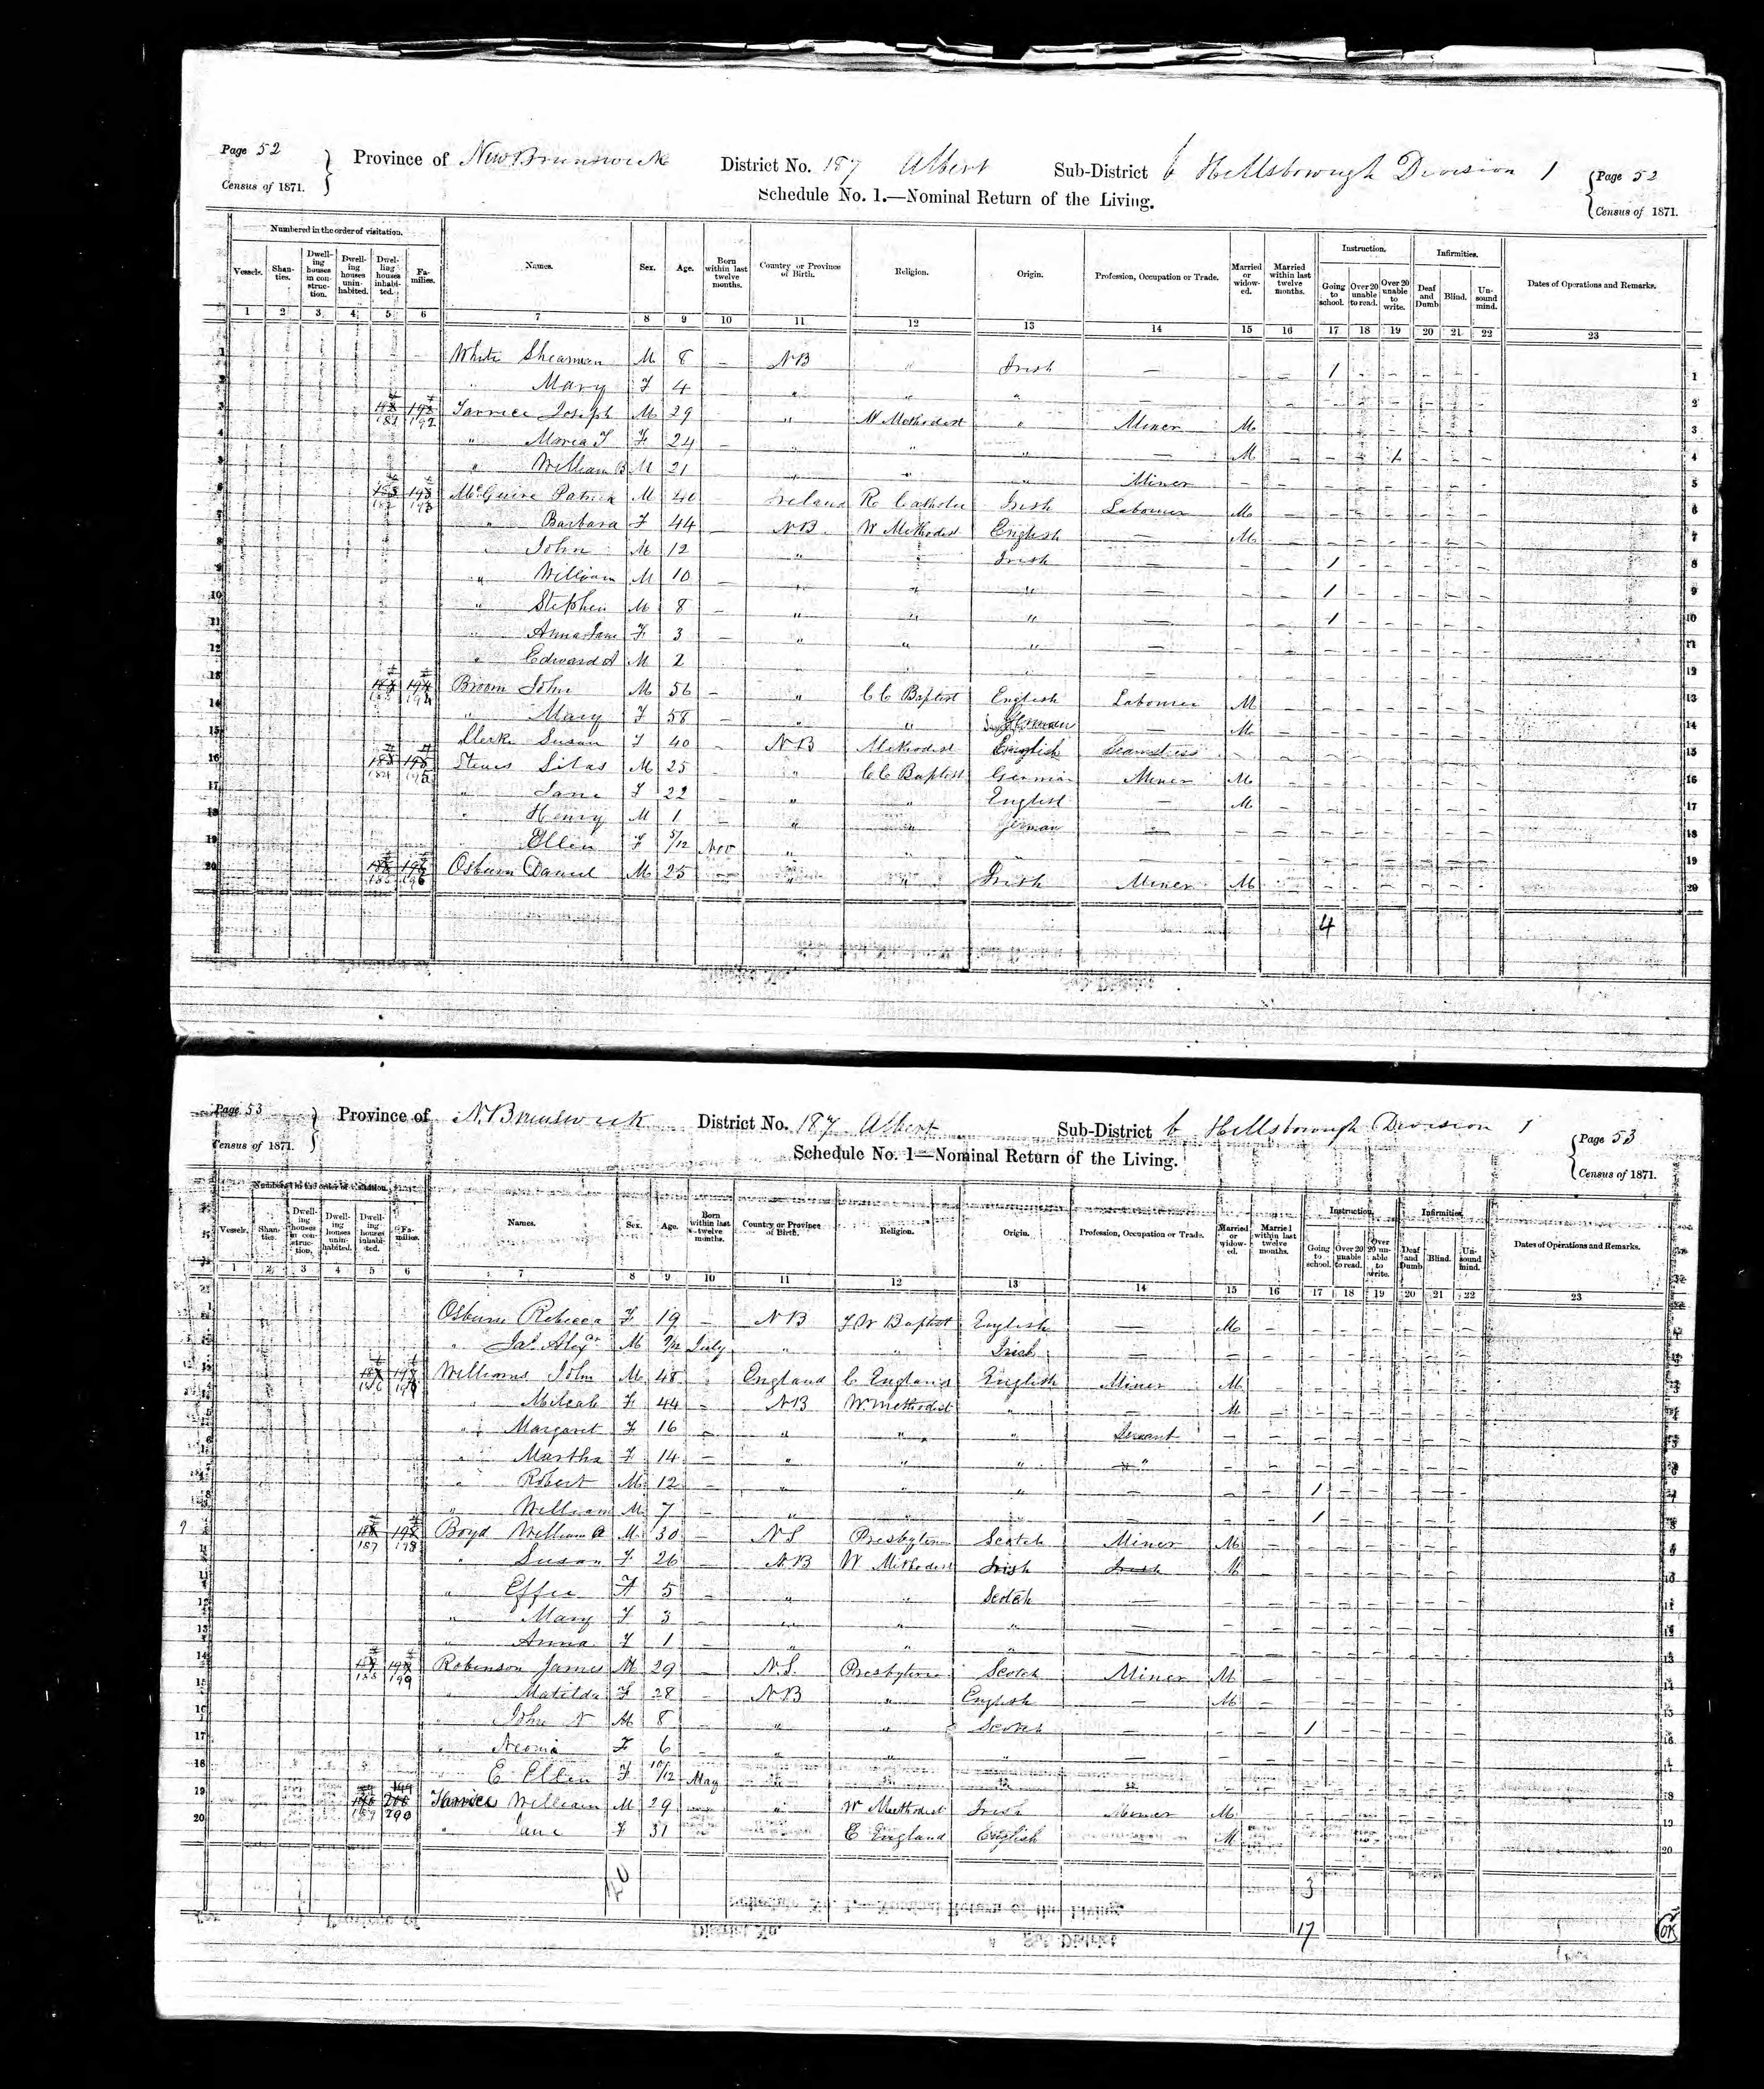 Page 52 Province of New Brunswick District No. 187 Albert Sub-District b Hillsborough Division 1 Page 52
Census of 1871. Schedule No. 1.—Nominal Return of the Living. Census of 1871.
Numbered in the order of visitation. Instruction. Infirmities.
Vessels. Shanties. Dwelling houses in construction. Dwelling houses uninhabited. Dwelling houses inhabited. Families. Names. Sex. Age. Born within last twelve months. Country or Province of Birth. Religion. Origin. Profession, Occupation or Trade. Married or widowed. Married within last twelve months. Going to school. Over 20 unable to read. Over 20 unable to write. Deaf and Dumb Blind. Unsound mind. Dates of Operations and Remarks.
1 2 3 4 5 6 7 8 9 10 11 12 13 14 15 16 17 18 19 20 21 22 23
1 White Shearman M 8 — NB " Irish — — — 1 1
2 " Mary F 4 " " " 2
3 181 192 Joseph M 29 " W Methodist " Miner M 3
4 " Maria F 24 — " " " — M 1 4
5 " William B M 21 " " " Miner 5
6 182 193 McGuire Patrick M 40 Ireland R Catholic Irish Labourer M 6
7 " Barbara F 44 — NB W Methodist English — M 7
8 " John M 12 " " Irish — 1 8
9 " William M 10 — " " " — 1 9
10 " Stephen M 8 — " " " — 1 10
11 " Anna Jane F 3 — " " " — 11
12 " Edward A M 2 " " " — 12
13 183 194 Broom John M 56 — " C C Baptist English Labourer M 13
14 " Mary F 58 " " German — M 14
15 Clerke Susan F 40 — NB Methodist English Seamstress 15
16 184 195 Steves Silas M 25 " C C Baptist German Miner M 16
17 " Jane F 22 — " " English — M 17
18 " Henry M 1 — " " German — 18
19 " Ellen F 5/12 Nov " " " — 19
20 185 196 Osburn Daniel M 25 — " " Irish Miner M 20
4
Page 53 Province of N. Brunswick District No. 187 Albert Sub-District b Hillsborough Division 1 Page 53
Census of 1871. Schedule No. 1—Nominal Return of the Living. Census of 1871.
Numbered in the order of visitation. Instruction. Infirmities.
Vessels. Shanties. Dwelling houses in construction. Dwelling houses uninhabited. Dwelling houses inhabited. Families. Names. Sex. Age. Born within last twelve months. Country or Province of Birth. Religion. Origin. Profession, Occupation or Trade. Married or widowed. Married within last twelve months. Going to school. Over 20 unable to read. Over 20 unable to write. Deaf and Dumb Blind. Unsound mind. Dates of Operations and Remarks.
1 2 3 4 5 6 7 8 9 10 11 12 13 14 15 16 17 18 19 20 21 22 23
Osburn Rebecca F 19 — NB F W Baptist English — M
" Jas. Alexr M 9/12 July " " Irish —
186 197 Williams John M 48 England C England English Miner M
" Milcah F 44 — NB W Methodist " — M
" Margaret F 16 — " " " Servant
" Martha F 14 — " " " "
" Robert M 12 — " " " — 1
" William M 7 " " " — 1
187 198 Boyd William A M 30 — N S Presbyterian Scotch Miner M
" Susan F 26 — NB W Methodist Irish Irish M
" Effie F 5 — " " Scotch —
" Mary F 3 — " " " —
" Anna F 1 — " " " —
188 199 Robinson James M 29 — N.S. Presbyterian Scotch Miner M
" Matilda F 28 — NB " English — M
" John N M 8 — " " Scotch — 1
" Neomia F 6 — " " " —
" E Ellen F 10/12 May
189 William M 29 " W Methodist Irish Miner M
20 " Jane F 31 E England English — M 20
20 3
17
OK